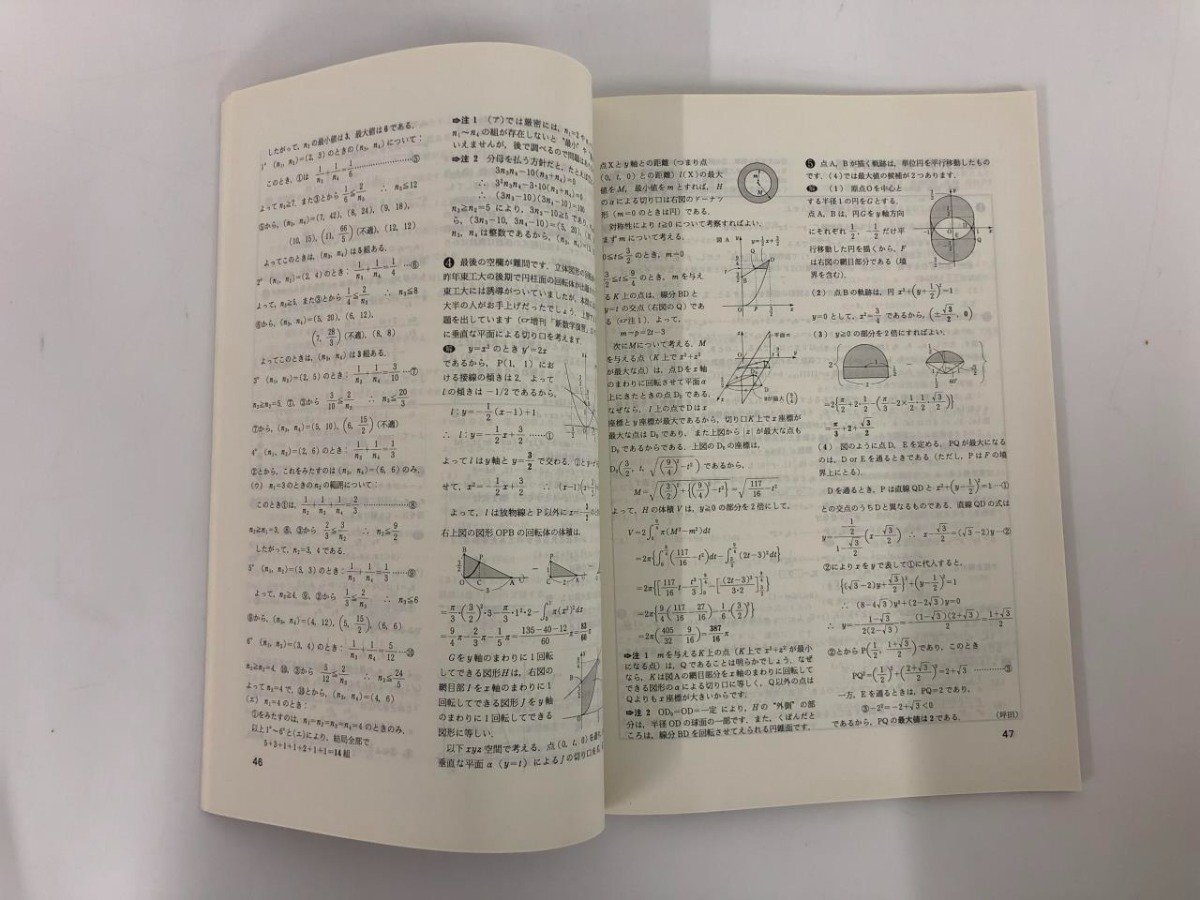 したがって，n₂の最小値は3，最大値は8である．
1° (n₁, n₂)=(2, 3)のときの(n₃, n₄)について：
このとき，①は 1/n₃+1/n₄=1/6 ……⑤
∴ n₃≦12
⑤から，(n₃, n₄)=(7, 42), (8, 24), (9, 18),
(10, 15), (11, 66/5)(不適), (12, 12)
よってこのときは，(n₃, n₄)は5組ある．
2° (n₁, n₂)=(2, 4)のとき：1/n₃+1/n₄=1/4 …⑥
よって，n₃≧5，また③から 1/4≦2/n₃ ∴ n₃≦8
⑥から，(n₃, n₄)=(5, 20), (6, 12),
(7, 28/3)(不適), (8, 8)
よってこのときは，(n₃, n₄)は3組ある．
3° (n₁, n₂)=(2, 5)のとき：1/n₃+1/n₄=3/10 …⑦
n₃≧n₂=5，⑦，③から 3/10≦2/n₃ ∴ n₃≦20/3
⑦から，(n₃, n₄)=(5, 10), (6, 15/2)(不適)
4° (n₁, n₂)=(2, 6)のとき：1/n₃+1/n₄=1/3
②とから，これをみたすのは(n₃, n₄)=(6, 6)のみ．
(ウ) n₁=3のときのn₂の範囲について：
このとき①は，1/n₂+1/n₃+1/n₄=2/3 ……⑧
n₂≧n₁=3，⑧，③から 2/3≦3/n₂ ∴ n₂≦9/2
したがって，n₂=3, 4である．
5° (n₁, n₂)=(3, 3)のとき：1/n₃+1/n₄=1/3 ……⑨
よって，n₃≧4，⑨，②から 1/3≦2/n₃ ∴ n₃≦6
⑨から，(n₃, n₄)=(4, 12), (5, 15/2), (6, 6)
6° (n₁, n₂)=(3, 4)のとき：1/n₃+1/n₄=5/12 …⑩
n₃≧n₂=4，⑩，③から 5/12≦2/n₃ ∴ n₃≦24/5
よってn₃=4で，⑩とから，(n₃, n₄)=(4, 6)
(エ) n₁=4のとき：
①をみたすのは，n₁=n₂=n₃=n₄=4のときのみ．
以上1°～6°と(エ)により，結局全部で
5+3+1+1+2+1+1=14組
46
➡注 1 (ア)では厳密には，
n₁～n₄の組が存在しないと“最小”
いえませんが，後で調べるので問題
➡注 2 分母を払う方針だと，
3n₃n₄−10(n₃+n₄)=0
∴ 3²n₃n₄−3·10(n₃+n₄)=0
∴ (3n₃−10)(3n₄−10)=100
n₃≧n₂=5により，3n₃−10≧5
ら，(3n₃−10, 3n₄−10)=(5, 20),
n₃, n₄は整数であるから，(n₃, n₄)=
④ 最後の空欄が難問です．立体図形の
昨年東工大の後期で円柱面の回転体が
東工大には誘導がついていましたが，
大半の人がお手上げだったでしょう．
題を出しています
に垂直な平面による切り口を考えます．
解 y=x²のときy′=2x
であるから，P(1, 1)にお
ける接線の傾きは2．よって
lの傾きは−1/2であるから，
l：y=−1/2(x−1)+1
∴ l：y=−1/2x+3/2 ……①
よってlはy軸とy=3/2で交わる．
せて，x²=−1/2x+3/2
よって，lは放物線とP以外にx=
右上図の図形OPBの回転体の体積は，
=π/3·(3/2)²·3−π/3·1²·2−∫₀¹π(x²)²dx
=9/4π−2/3π−1/5π=(135−40−12)/60π=83/60π
Gをy軸のまわりに1回転
してできる図形Hは，右図の
網目部Iをx軸のまわりに1
回転してできる図形Jをy軸
のまわりに1回転してできる
図形に等しい．
以下xyz空間で考える．点(0, t, 0)を
垂直な平面α(y=t)によるJの切り口
点Xとy軸との距離（つまり点
(0, t, 0)との距離）l(X)の最大
値をM，最小値をmとすれば，H
のαによる切り口は右図のドーナツ
形（m=0のときは円）である．
対称性によりt≧0について考察すればよい．
まずmについて考える．
0≦t≦3/2のとき，m=0
3/2≦t≦9/4のとき，mを与え
るK上の点は，線分BDと
y=tの交点（右図のQ）であ
る（☞注1）．よって，
m=p=2t−3
次にMについて考える．M
を与える点（K上でx²+z²
が最大な点）は，点Dをx軸
のまわりに回転させて平面α
上にきたときの点D₀である．
なぜなら，I上の点でDはx
座標とy座標が最大であるから，切り口K上でx座標が
最大な点はD₀であり，また上図から|z|が最大な点も
D₀であるからである．上図のD₀の座標は，
D₀(3/2, t, √((9/4)²−t²))であるから，
M=√((3/2)²+{(9/4)²−t²})=√(117/16−t²)
よって，Hの体積Vは，y≧0の部分を2倍にして，
V=2∫₀^(9/4)π(M²−m²)dt
=2π{∫₀^(9/4)(117/16−t²)dt−∫_(3/2)^(9/4)(2t−3)²dt}
=2π{[117/16t−t³/3]₀^(9/4)−[(2t−3)³/(2·3)]_(3/2)^(9/4)}
=2π{9/4(117/16−27/16)−1/6(3/2)³}
=2π(405/32−9/16)=387/16π
➡注 1 mを与えるK上の点（K上でx²+z²が最小
になる点）は，Qであることは明らかでしょう．なぜ
なら，Kは図Aの網目部分をx軸のまわりに回転して
できる図形のαによる切り口に等しく，Q以外の点は
Qよりもx座標が大きいからです．
➡注 2 OD₀=OD=一定により，Hの“外側”の部
分は，半径ODの球面の一部です．また，くぼんだと
ころは，線分BDを回転させてえられる円錐面です．
⑤ 点A，Bが描く軌跡は，単位円を平行移動したもの
です．(4)では最大値の候補が2つあります．
解 (1) 原点Oを中心と
する半径1の円をGとする．
点A，Bは，円Gをy軸方向
にそれぞれ1/2，−1/2だけ平
行移動した円を描くから，F
は右図の網目部分である（境
界を含む）．
(2) 点Bの軌跡は，円x²+(y+1/2)²=1
y=0として，x²=3/4であるから，(±√3/2, 0)
(3) y≧0の部分を2倍にすればよい．
=2{π/2+2·1/2−(π/3−2×1/2·1/2·√3/2)}
=π/3+2+√3/2
(4) 図のように点D，Eを定める．PQが最大になる
のは，D or Eを通るときである（ただし，PはFの境
界上にとる）．
Dを通るとき，Pは直線QDとx²+(y−1/2)²=1…①
との交点のうちDと異なるものである．直線QDの式は
∴ x−√3/2=(√3−2)y…②
②によりxをyで表して①に代入すると，
{(√3−2)y+√3/2}²+(y−1/2)²=1
∴ (8−4√3)y²+(2−2√3)y=0
∴ y=−(1−√3)/(2(2−√3))=−(1−√3)(2+√3)/2=(1+√3)/2
②とからP(1/2, (1+√3)/2)であり，このとき
PQ²=(1/2)²+((2+√3)/2)²=2+√3 ……③
一方，Eを通るときは，PQ=2であり，
③−2²=−2+√3<0
であるから，PQの最大値は2である．
（坪田）
47